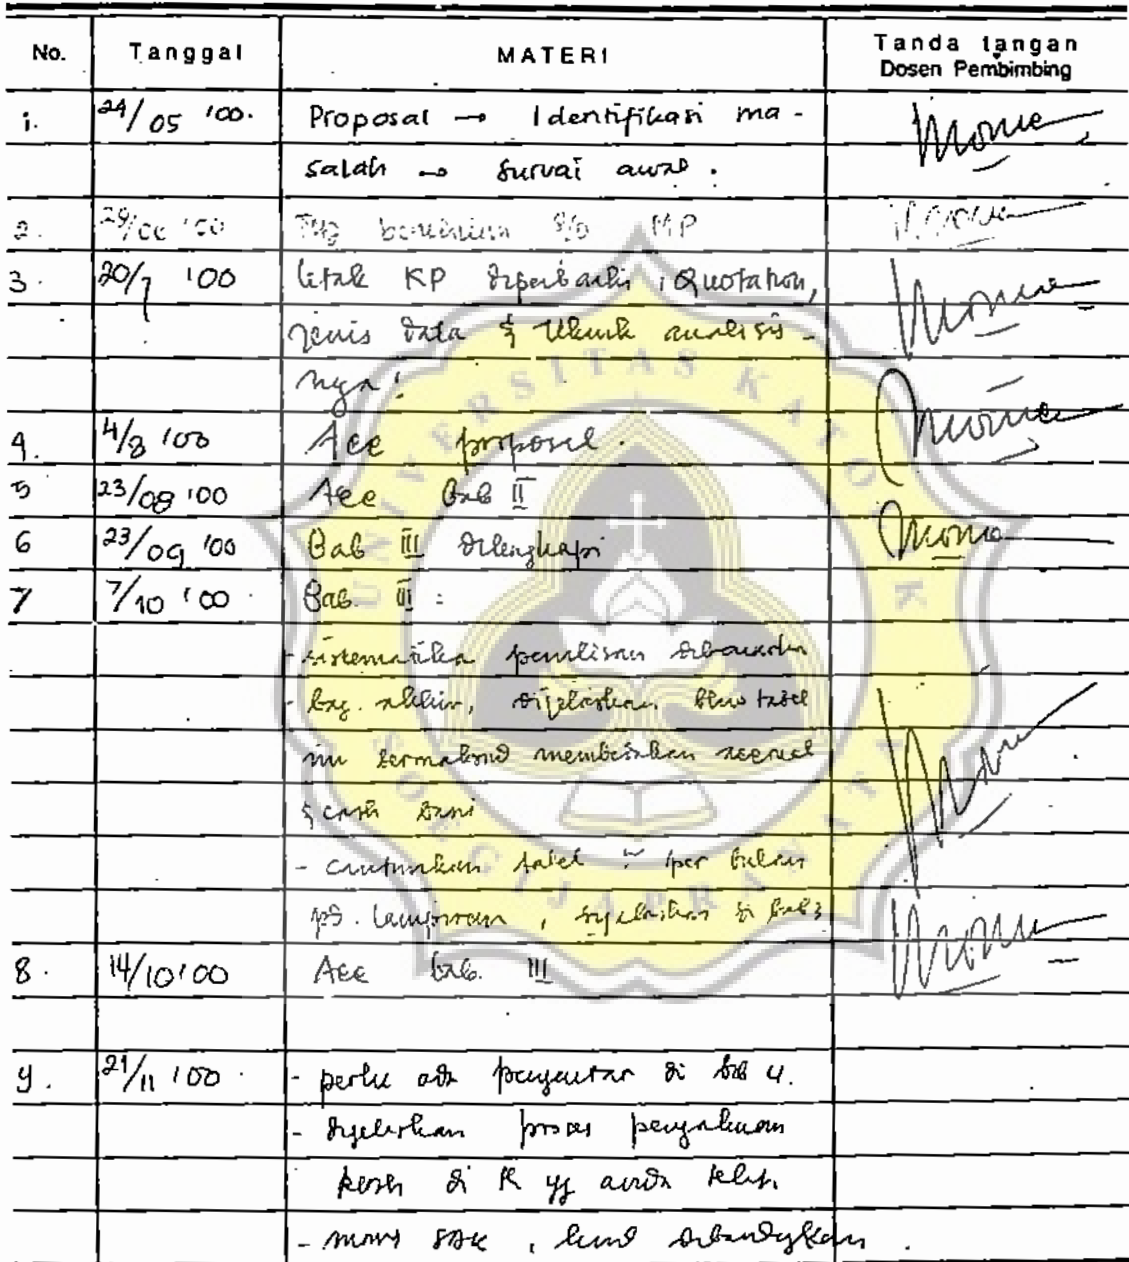 No. Tanggal MATERI Tanda tangan
Dosen Pembimbing
1. 24/05 '00. Proposal → Identifikasi ma-
salah → survai awal.
2. 29/06 '00 MP
3. 20/7 '00 letak KP diperbaiki, Quotation,
jenis data & teknik analisis-
nya!
4. 4/8 '00 Acc proposal.
5 23/08 '00 Acc bab II
6 23/09 '00 Bab III dilengkapi
7 7/10 '00 Bab. III :
- sistematika penulisan
- bag. akhir, dijelaskan tabel
ini bermaksud membedakan accrual
& cash basis
- cantumkan tabel per bulan
pd. lampiran, dijelaskan di bab 3
8. 14/10 '00 Acc bab. III
9. 21/11 '00 - perlu ada pengantar di bab 4.
- dijelaskan proses pengakuan
di R yg anda
- SAK, dibandingkan.
UNIVERSITAS KATOLIK
SOEGIJAPRANATA